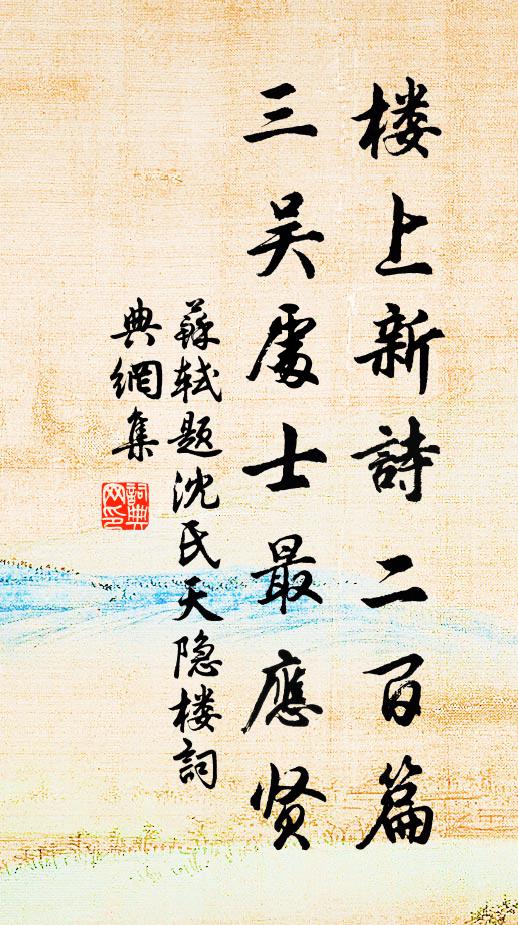 楼上新詩二百篇
三吴處士最應贤
蘇轼题沈氏天隐楼詞
典網集
詞典网印